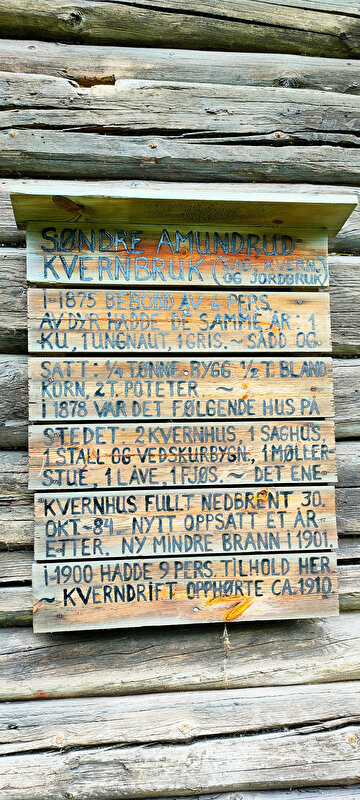 SØNDRE AMUNDRUD-
KVERNBRUK (SAG, KVERN.
OG JORDBRUK)
I-1875 BEBODD AV 6 PERS.
AV DYR HADDE DE SAMME ÅR: 1
KU, 1 UNGNAUT, 1 GRIS. ~ SÅDD OG
SATT: ¼ TØNNE BYGG ½ T. BLAND
KORN, 2 T. POTETER ~
I 1878 VAR DET FØLGENDE HUS PÅ
STEDET: 2 KVERNHUS, 1 SAGHUS,
1 STALL OG VEDSKURBYGN., 1 MØLLER-
STUE, 1 LÅVE, 1 FJØS. ~ DET ENE
KVERNHUS FULLT NEDBRENT 30.
OKT.-84. NYTT OPPSATT ET ÅR
ETTER. NY MINDRE BRANN I 1901.
I-1900 HADDE 9 PERS. TILHOLD HER
~ KVERNDRIFT OPPHØRTE CA. 1910